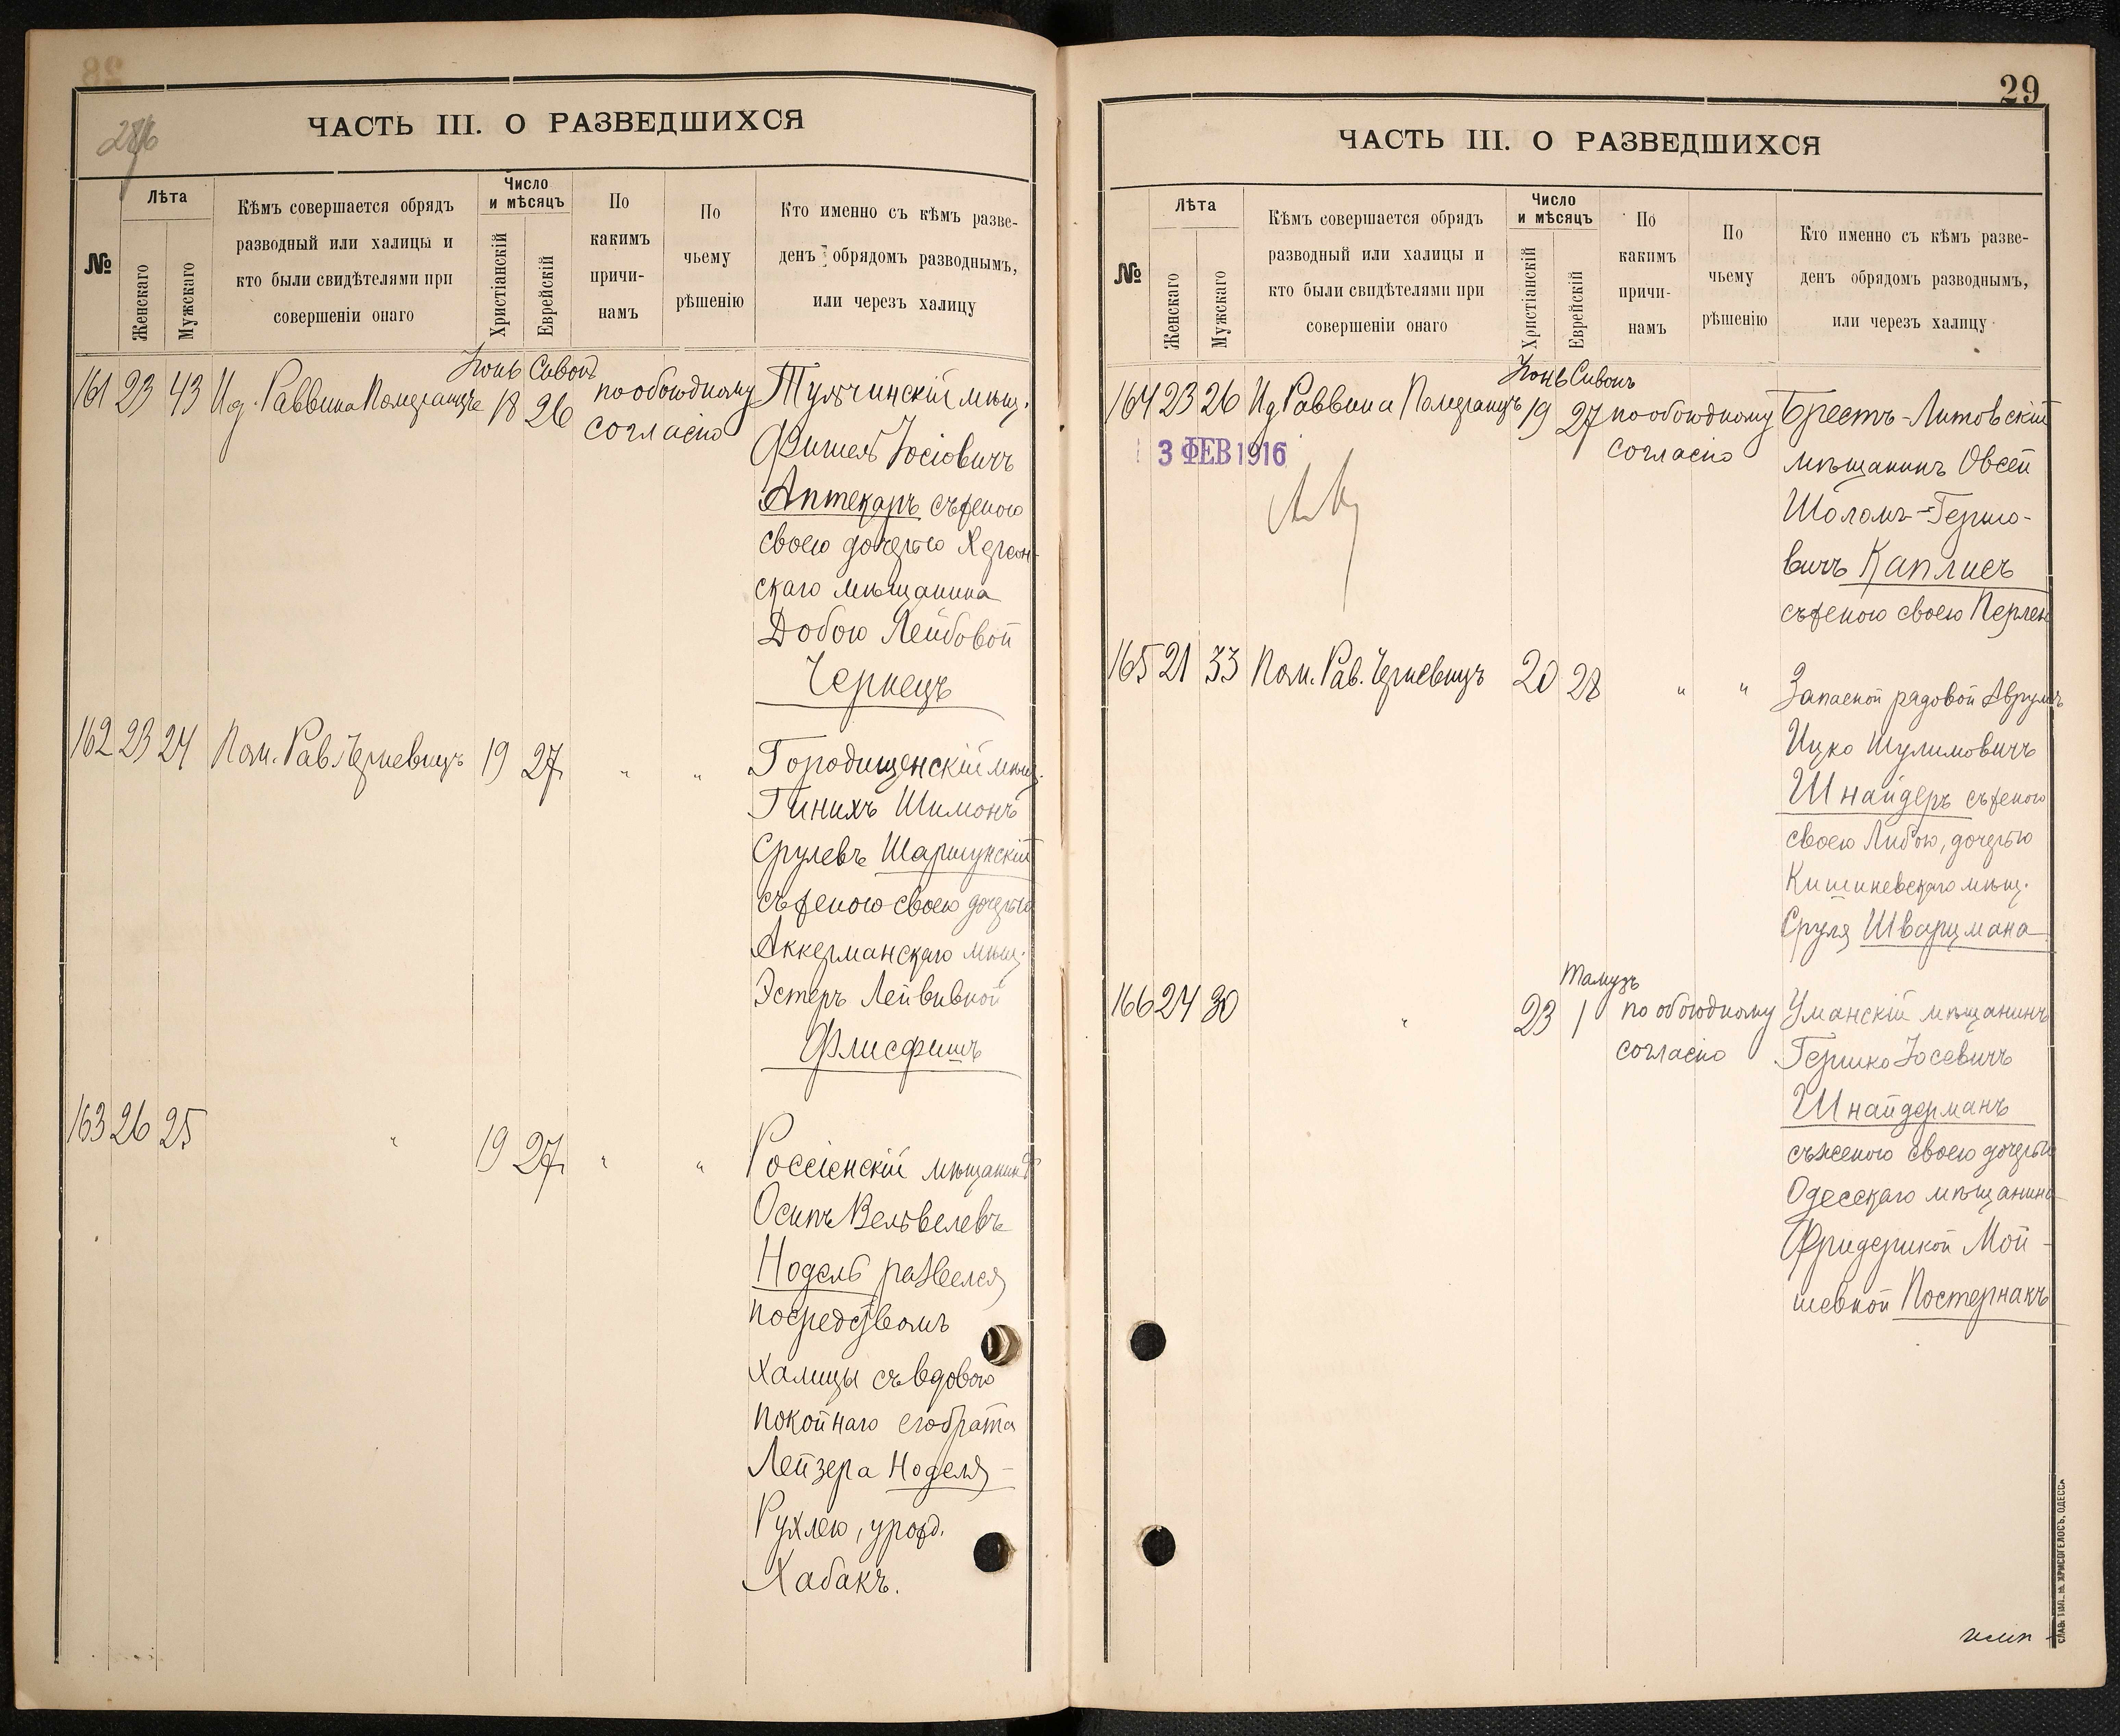 ЧАСТЬ III. О РАЗВЕДШИХСЯ
№
Лѣта
Женскаго
Мужскаго
Кѣмъ совершается обрядъ
разводный или халицы и
кто были свидѣтелями при
совершеніи онаго
Число
и мѣсяцъ
Христіанскій
Еврейскій
По
какимъ
причи-
намъ
По
чьему
рѣшенію
Кто именно съ кѣмъ разве-
денъ обрядомъ разводнымъ,
или черезъ халицу
Іюнь Сивонъ
161 23 43 Ид. Раввина Померанцъ 18 26 по обоюдному
согласію
Тульчинскій мѣщ.
Фишель Іосіовичъ
Аптекарь съ женою
своею дочерью Херсон-
скаго мѣщанина
Добою Лейбовой
Чернецъ
162 23 24 Пом. Рав. Черневицъ 19 27 " "
Городищенскій мѣщ.
Гинихъ Шимонъ
Срулевъ Шаршунскій
съ женою своею дочерью
Аккерманскаго мѣщ.
Эстеръ Лейвивной
Флисфишъ
163 26 25 " 19 27 " "
Россіенскій мѣщанинъ
Осипъ Вельвелевъ
Нодель развелся
посредствомъ
халицы съ вдовою
покойнаго его брата
Лейзера Ноделя -
Рухлею, урожд.
Хабакъ.
29
ЧАСТЬ III. О РАЗВЕДШИХСЯ
№
Лѣта
Женскаго
Мужскаго
Кѣмъ совершается обрядъ
разводный или халицы и
кто были свидѣтелями при
совершеніи онаго
Число
и мѣсяцъ
Христіанскій
Еврейскій
По
какимъ
причи-
намъ
По
чьему
рѣшенію
Кто именно съ кѣмъ разве-
денъ обрядомъ разводнымъ,
или черезъ халицу
Іюнь Сивонъ
164 23 26 Ид Раввина Померанцъ 19 27 по обоюдному
согласію
3 ФЕВ 1916
Брестъ-Литовскій
мѣщанинъ Овсей
Шоломъ-Гершо-
вичъ Каплисъ
съ женою своею Перлею
165 21 33 Пом. Рав. Черневицъ 20 28 " "
Запасной рядовой Аврумъ
Ицко Шулимовичъ
Шнайдеръ съ женою
своею Либою, дочерью
Кишиневскаго мѣщ.
Сруля Шварцмана
Тамузъ
166 24 30 " 23 1 по обоюдному
согласію
Уманскій мѣщанинъ
Гершко Іосевичъ
Шнайдерманъ
съ женою своею дочерью
Одесскаго мѣщанина
Фридерикой Мой-
шевной Постернакъ
СЛАВ. ТИП. Н. ХРИСОГЕЛОСЪ, ОДЕССА